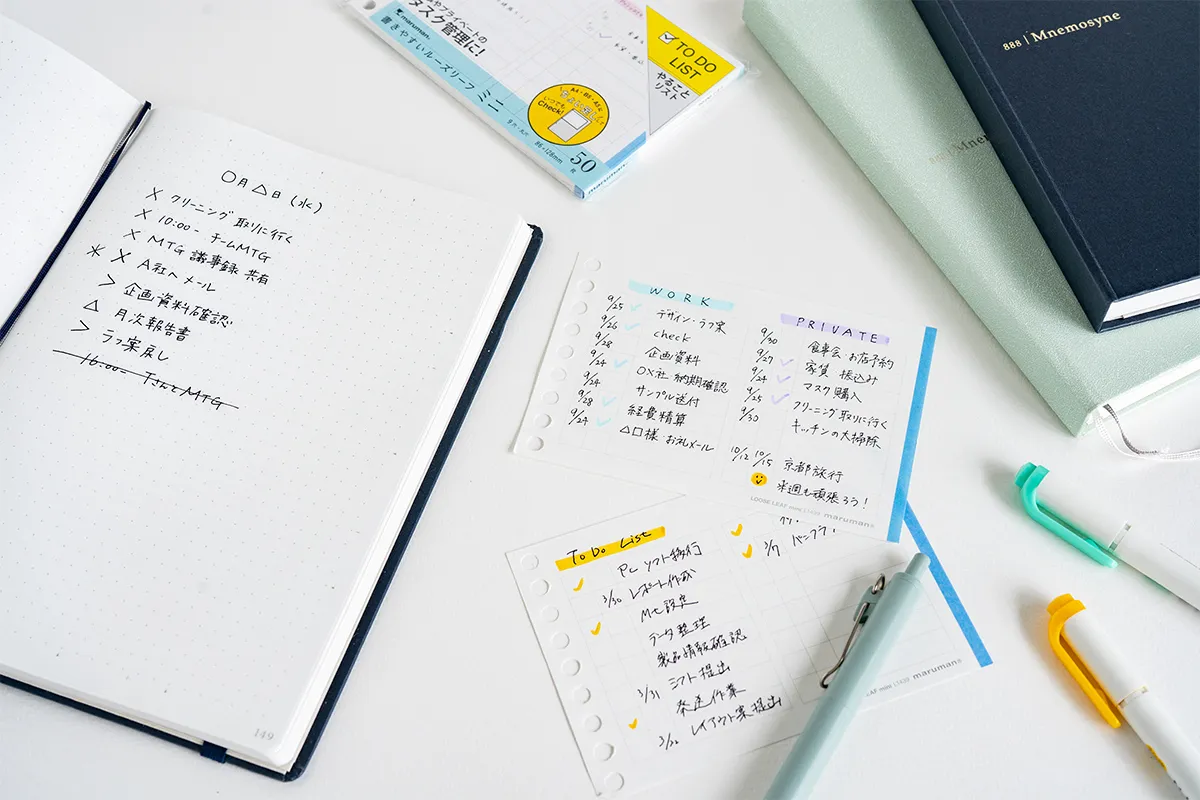 〇月△日(水)
× クリーニング取りに行く
× 10:00- チームMTG
× MTG 議事録 共有
* × A社へメール
> 企画資料確認
△ 月次報告書
> ラフ案戻し
16:00- TさんとMTG
149
やプライベートの
タスク管理に!
maruman.
書きやすいルーズリーフ ミニ
A4・B5・A5に
いつでも
Check!
9穴・
86×128mm
50
maruman
TO DO
LIST
やること
リスト
888 | Mnemosyne
WORK
9/25 ✓ デザイン・ラフ案
9/26 ✓ check
9/28 企画資料
9/24 ✓ OX社 納期確認
9/24 サンプル送付
9/28 ✓ 経費精算
9/24 ✓ △□様 お礼メール
PRIVATE
9/30 食事会 お店予約
9/27 ✓ 家賃 振込み
9/24 ✓ マスク購入
9/25 ✓ クリーニング取りに行く
9/30 キッチンの大掃除
10/12 10/15 京都旅行
来週も頑張ろう!
LOOSE LEAF mini L1439 maruman®
To Do List
PC ソフト移行
✓ 3/30 レポート作成
Mc設定
✓ データ整理
製品情報確認
3/31 シフト提出
発送作業
✓ 3/30 レイアウト案提出
✓
✓ 3/7
LEAF mini L1439 maruman®